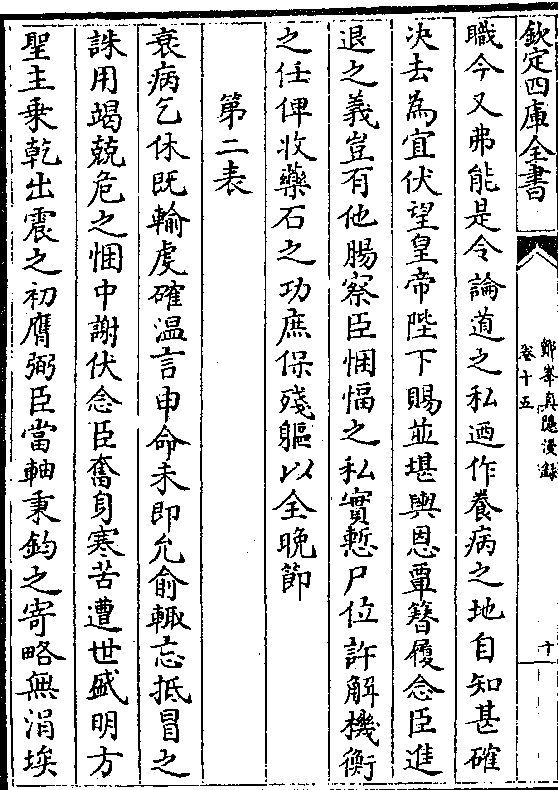 欽定四庫全書
鄮峯真隱漫録
卷十五
十
職今又弗能是令論道之私迺作養病之地自知甚確
決去為宜伏望皇帝陛下賜並堪輿恩覃簪履念臣進
退之義豈有他腸察臣悃愊之私實慙尸位許解機衡
之任俾收藥石之功庶保殘軀以全晚節
第二表
衰病乞休既輸虔確温言申命未即允俞輙忘抵冒之
誅用竭兢危之悃中謝伏念臣奮身寒苦遭世盛明方
聖主乗乾出震之初膺弼臣當軸秉鈞之寄略無涓埃